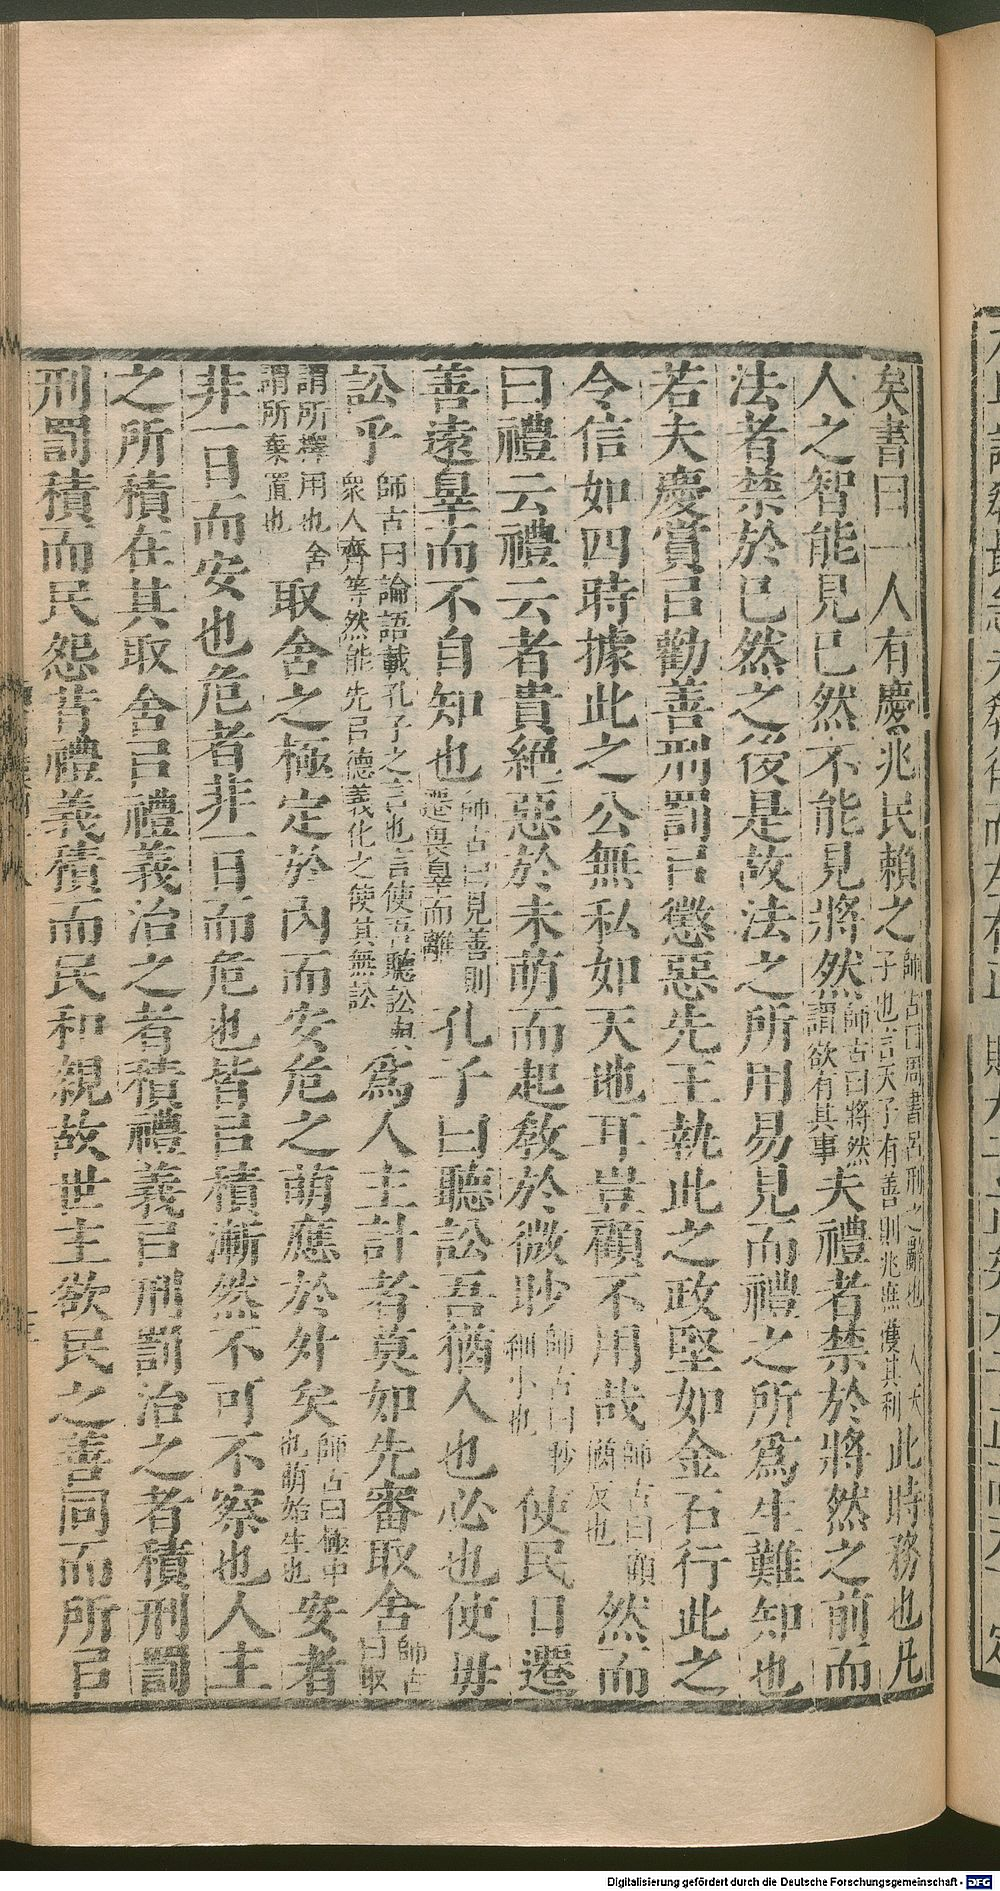 矣書曰一人有慶兆民賴之師古曰周書呂刑之辭也一人天子也言天子有善則兆庶獲其利此時務也凡
人之智能見已然不能見將然師古曰將然謂欲有其事夫禮者禁於將然之前而
法者禁於已然之後是故法之所用易見而禮之所爲生難知也
若夫慶賞㠯勸善刑罰㠯懲惡先王執此之政堅如金石行此之
令信如四時據此之公無私如天地耳豈顧不用哉師古曰顧猶反也然而
曰禮云禮云者貴絕惡於未萌而起敎於微眇師古曰眇細小也使民日遷
善遠辠而不自知也師古曰見善則遷畏辠而離孔子曰聽訟吾猶人也必也使毋
訟乎師古曰論語載孔子之言也言使吾聽訟與衆人齊等然能先㠯德義化之使其無訟爲人主計者莫如先審取舍師古曰取
謂所擇用也舍謂所棄置也取舍之極定於內而安危之萌應於外矣師古曰極中也萌始生也安者
非一日而安也危者非一日而危也皆㠯積漸然不可不察也人主
之所積在其取舍㠯禮義治之者積禮義㠯刑罰治之者積刑罰
刑罰積而民怨背禮義積而民和親故世主欲民之善同而所㠯
Digitalisierung gefördert durch die Deutsche Forschungsgemeinschaft - DFG